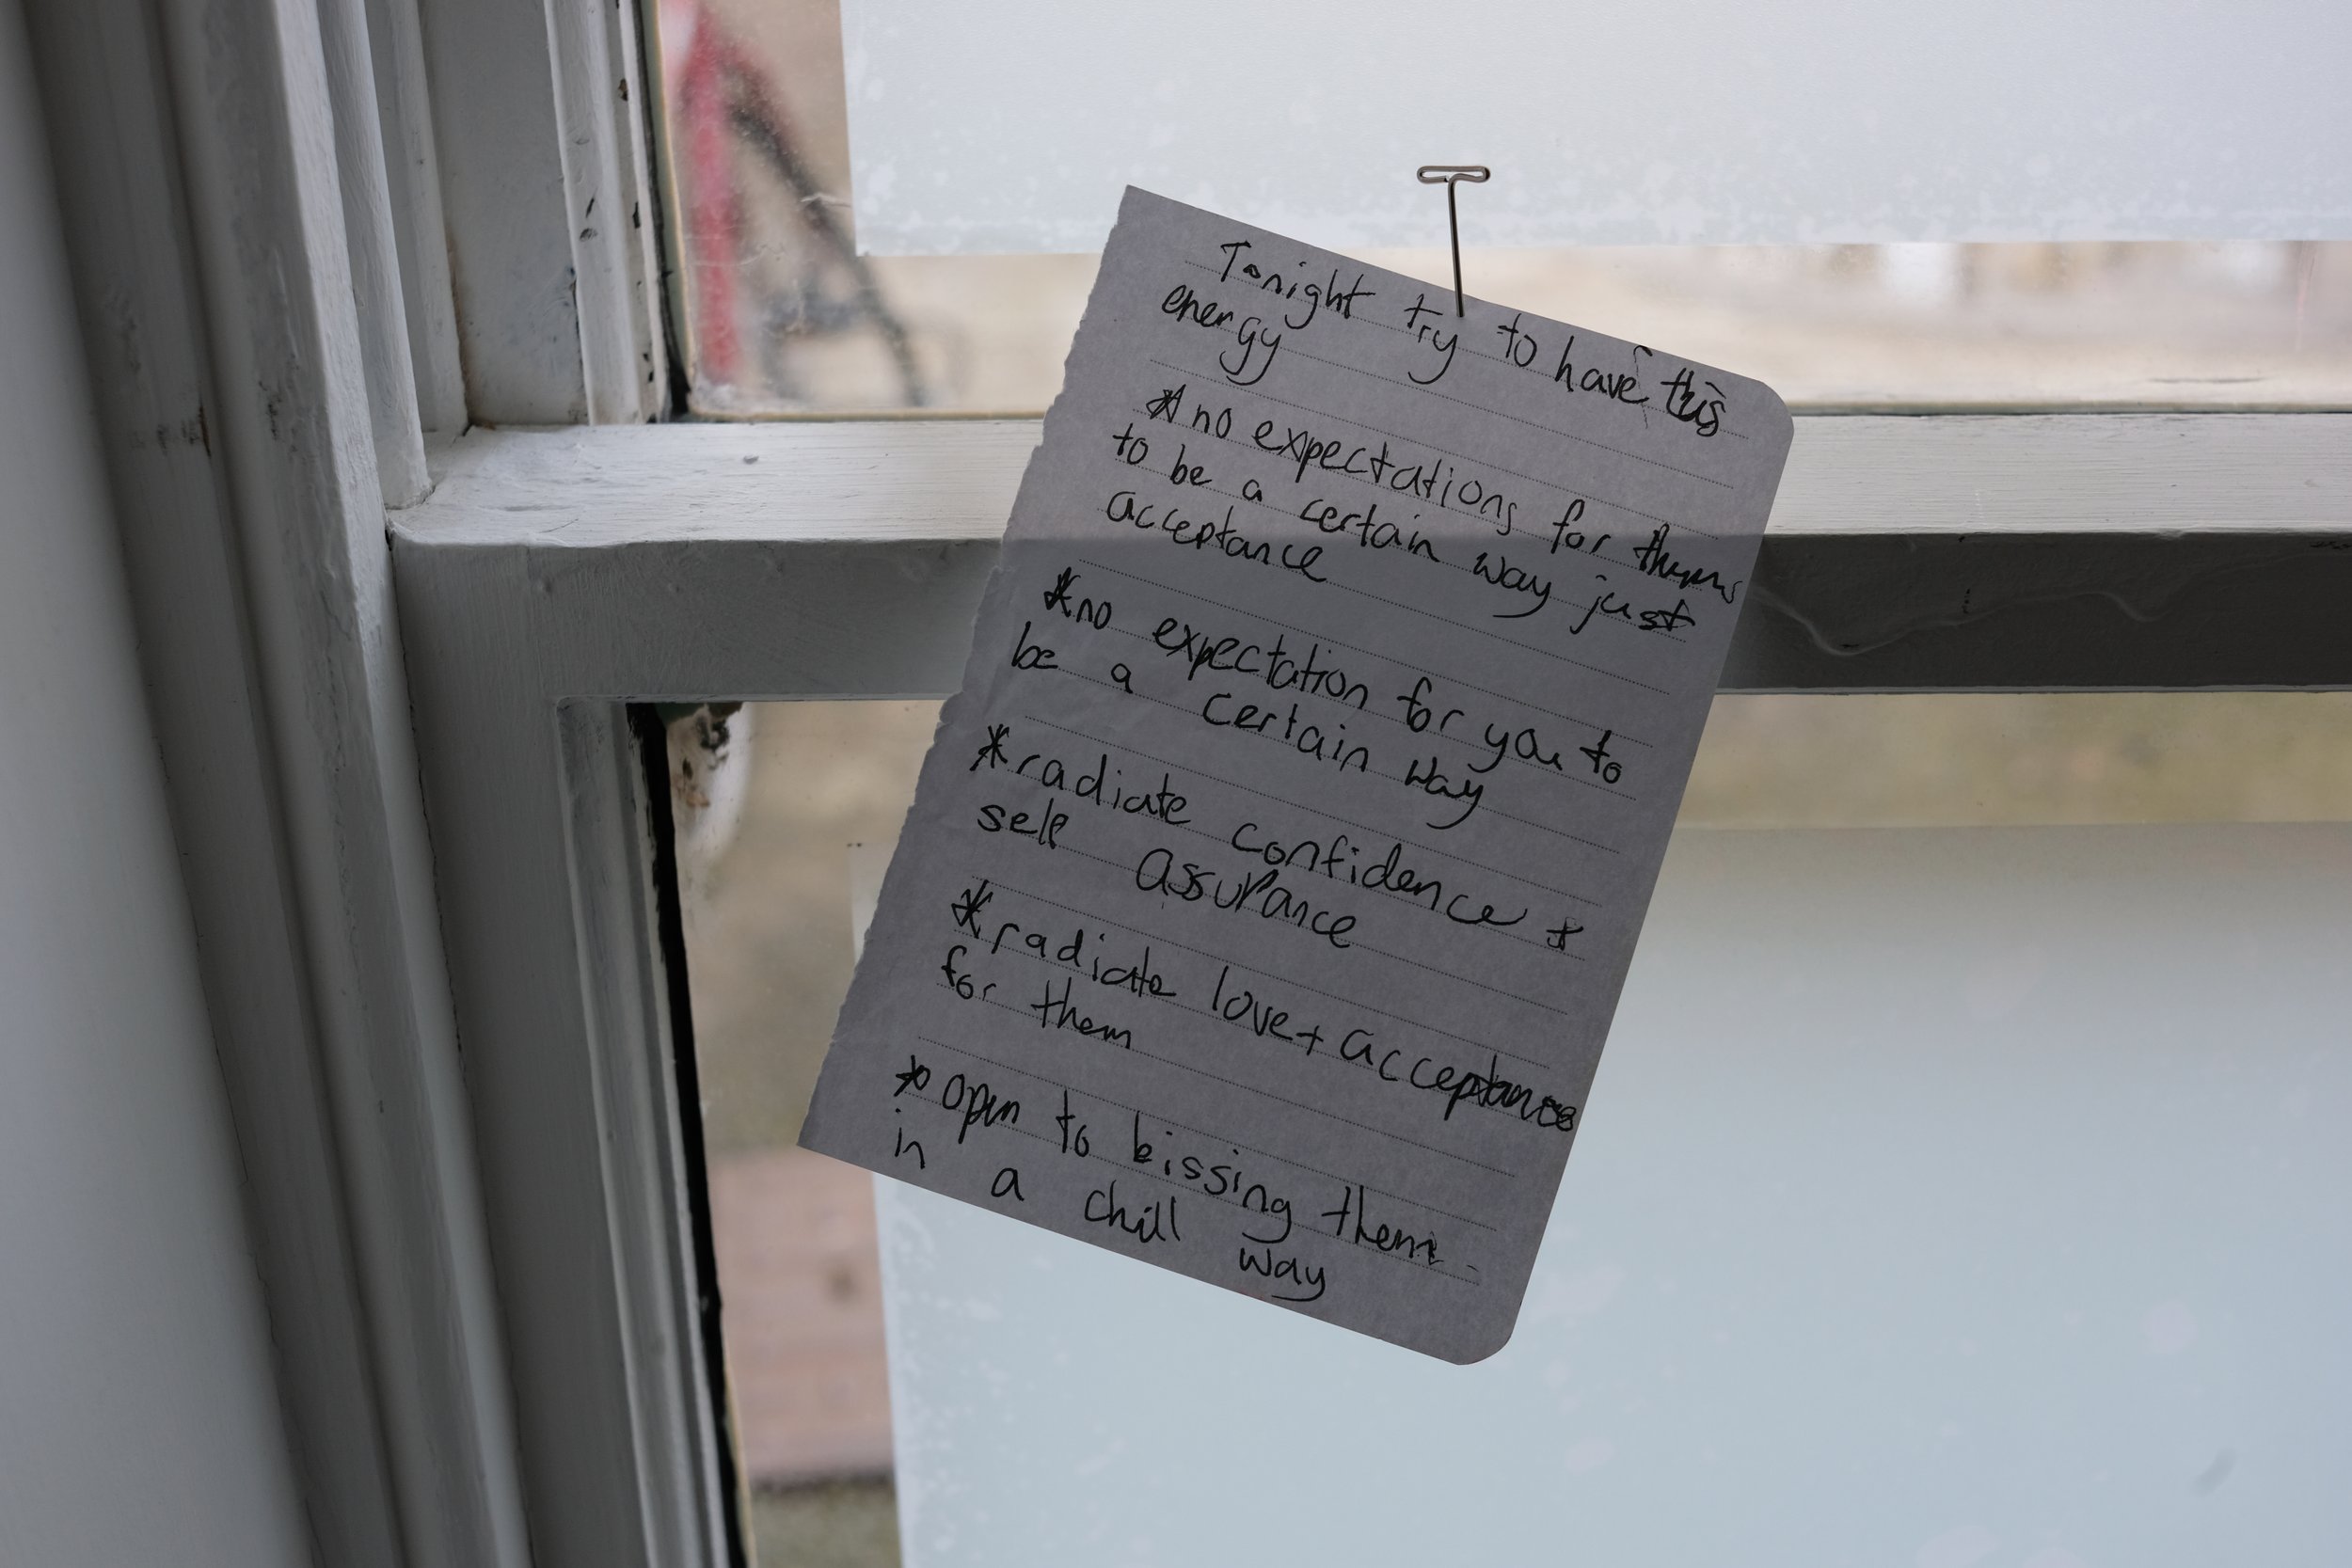 Tonight try to have this
energy
* no expectations for them
to be a certain way just
acceptance
* no expectation for you to
be a certain way
* radiate confidence +
self assurance
* radiate love + acceptance
for them
* open to kissing them
in a chill way